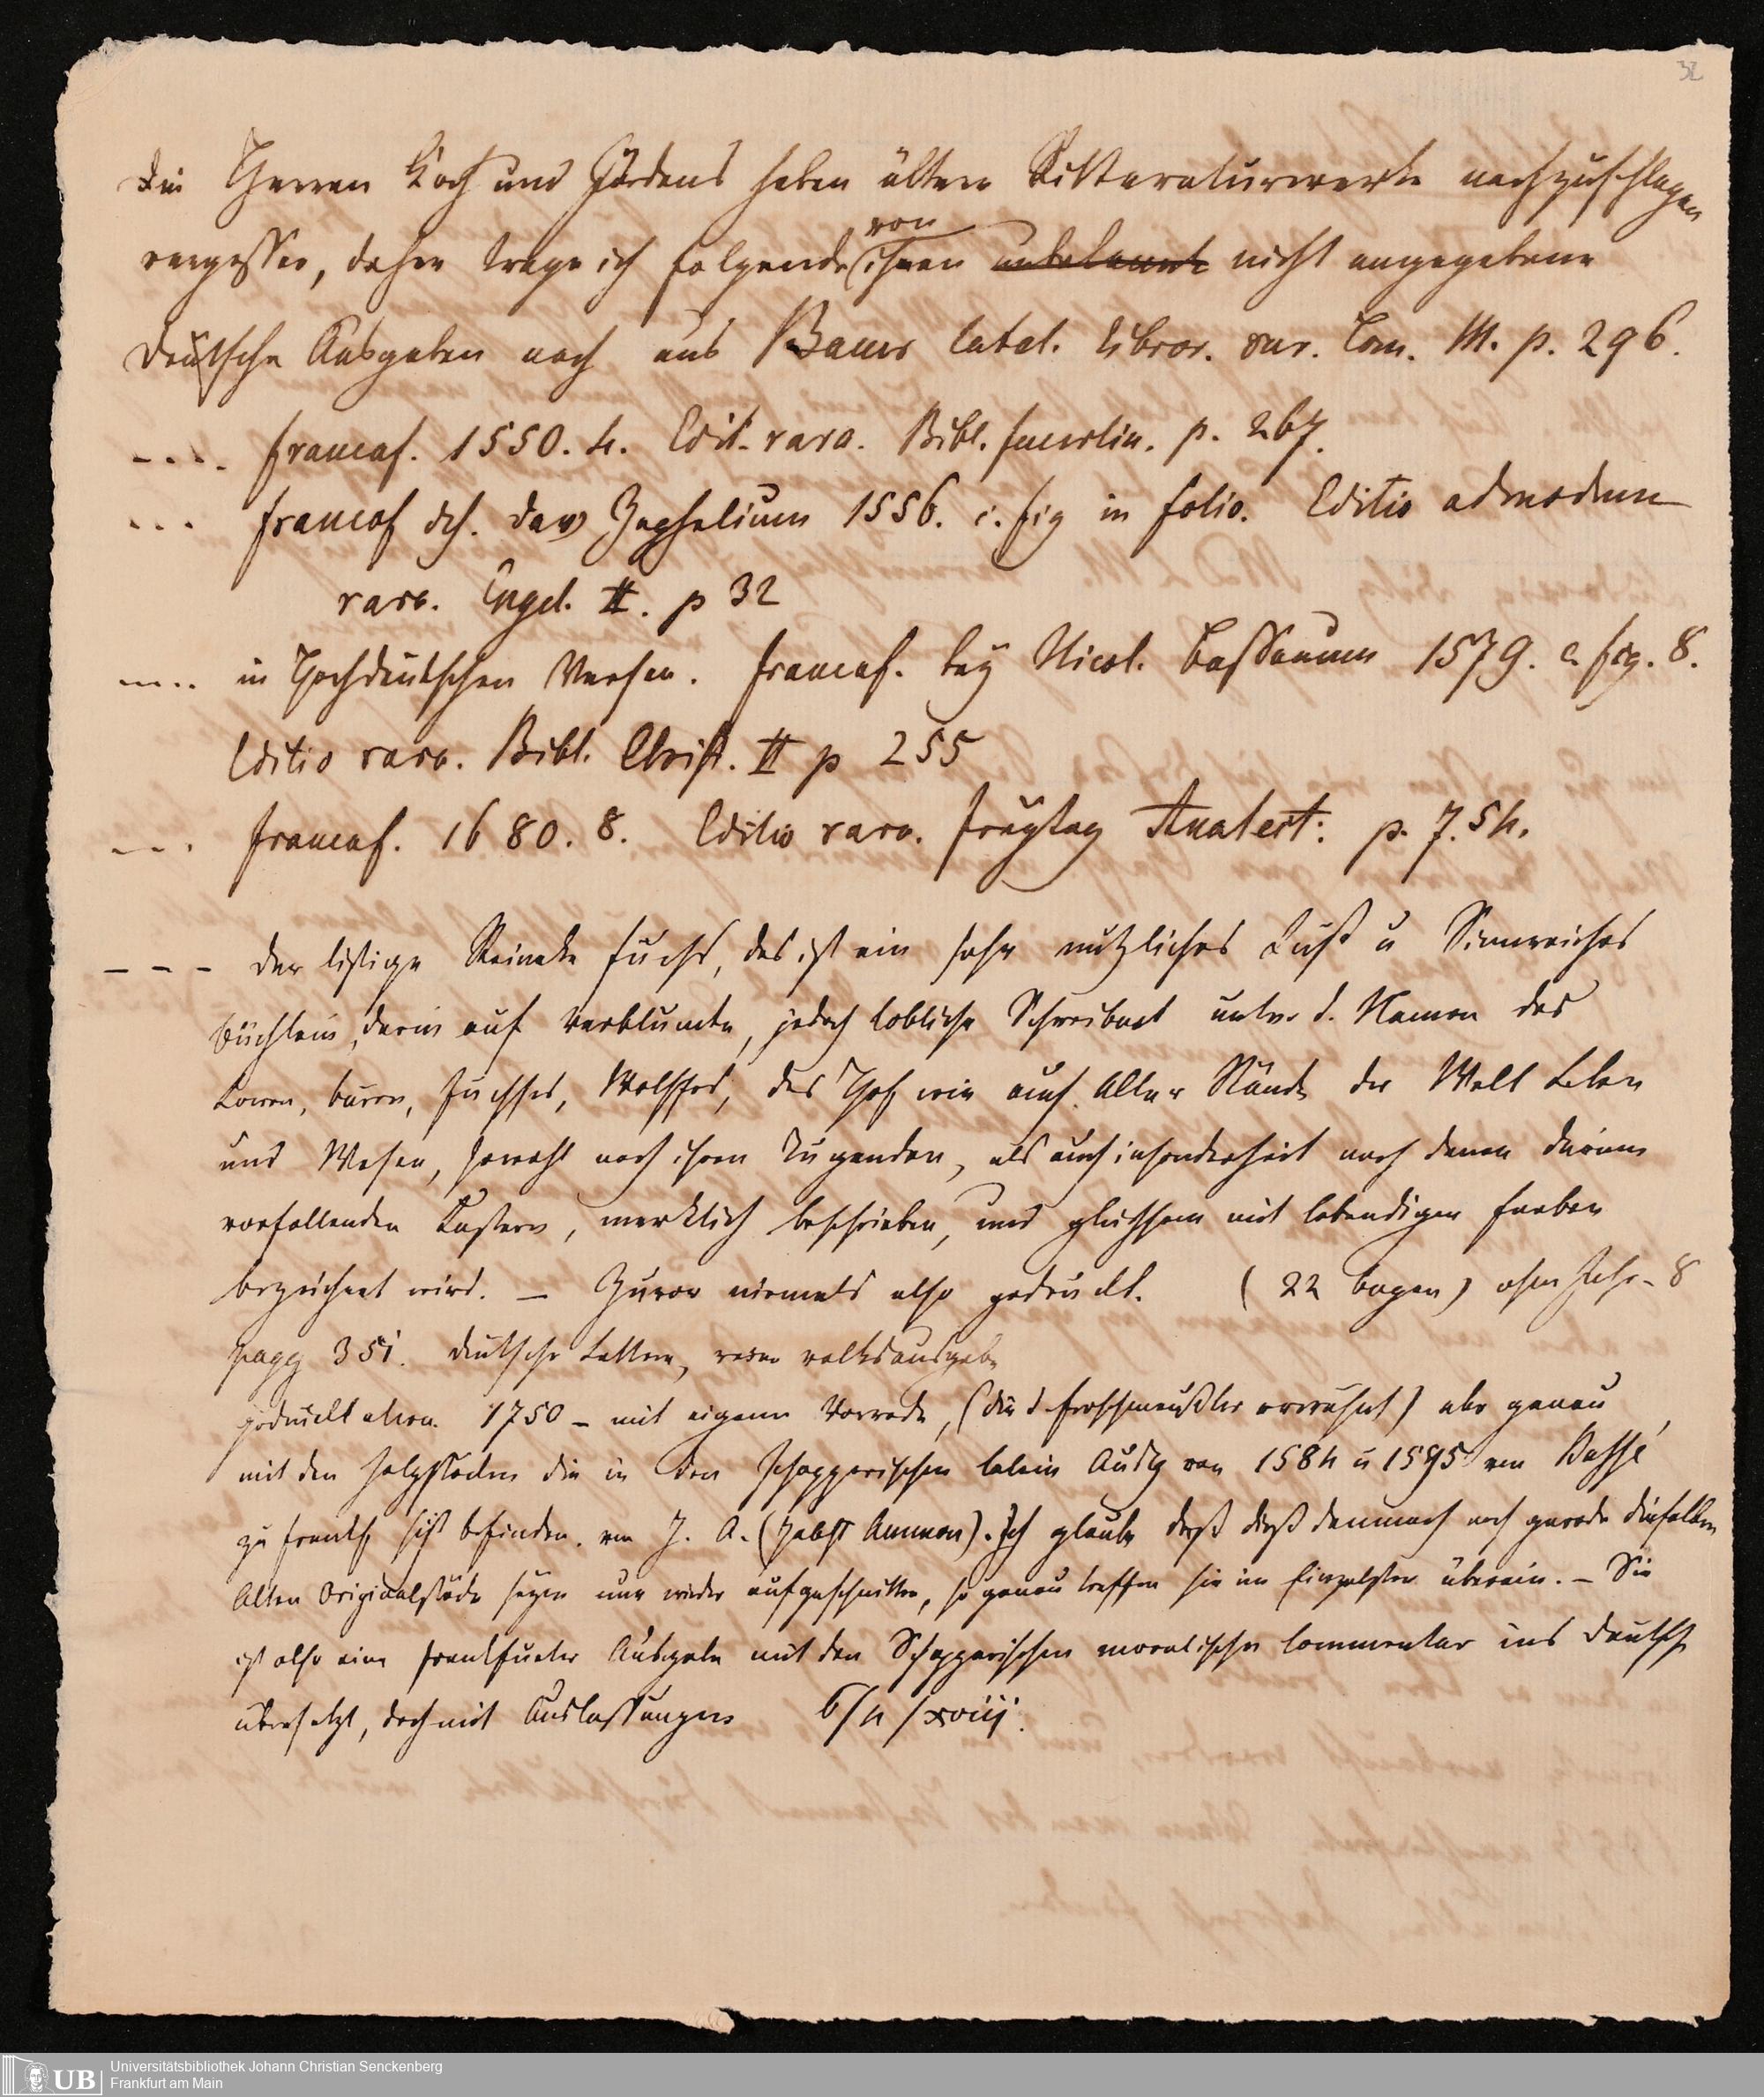 32
Die Herren Koch und Jördens haben ältere Litteraturwerke nachzuschlagen
vergessen, daher trage ich folgende von ihnen unbekannte nicht angegebene
deutsche Ausgaben noch aus Bauer Catal. Libror. rar. Tom. III. p. 296.
---- Francof. 1550. 4. Edit. rara. Bibl. p. 267.
--- Francof dch. Dav Zephelium 1556. c. fig in folio. Editio admodum
rara. Engel. II. p 32
---- in Hochdeutschen Versen. Francof. bey Nicol. Bassaeum 1579. c. fig. 8.
Editio rara. Bibl. Christ. II p 255
--- Francof. 1680. 8. Editio rara. Freytag Analect: p. 754.
--- Der listige Reineke Fuchs, das ist ein sehr nutzliches Lust u Sinnreiches
Büchlein, darin auf verblumte, jedoch lobliche Schreibart unter d. Namen des
Lowen, Bären, Fuchses, Wolffes, des Hof wie auch Aller Stände der Welt Leben
und Wesen, sowohl nach ihren Tugenden, als auch insonderheit nach denen darinn
vorfallenden Lastern, merklich beschrieben, und gleichsam mit lebendigen Farben
bezeichnet wird. — Zuvor niemals also gedruckt. (22 Bogen) ohne Jahr - 8
pagg 351. deutsche Lettern, Volksausgabe
gedruckt 1750 - mit eigener Vorrede, (die d. Froschmeußler erwähnt) aber genau
mit den Holzstöcken die in den Schopperischen latein Ausg von 1584 u 1595 von Bassé
zu Frankf sich befinden. von J. A. (Jobst Ammon). Ich glaube daß dieß demnach noch gerade dieselben
Alten Originalstöcke seyen nur wieder aufgeschnitten, so genau treffen sie im Einzelsten überein. — Sie
ist also eine Frankfurter Ausgabe mit den Schopperischen moralischen Commentar ins Deutsche
übersetzt, doch mit Auslassungen 6/4/xviij.
Universitätsbibliothek Johann Christian Senckenberg
Frankfurt am Main
UB